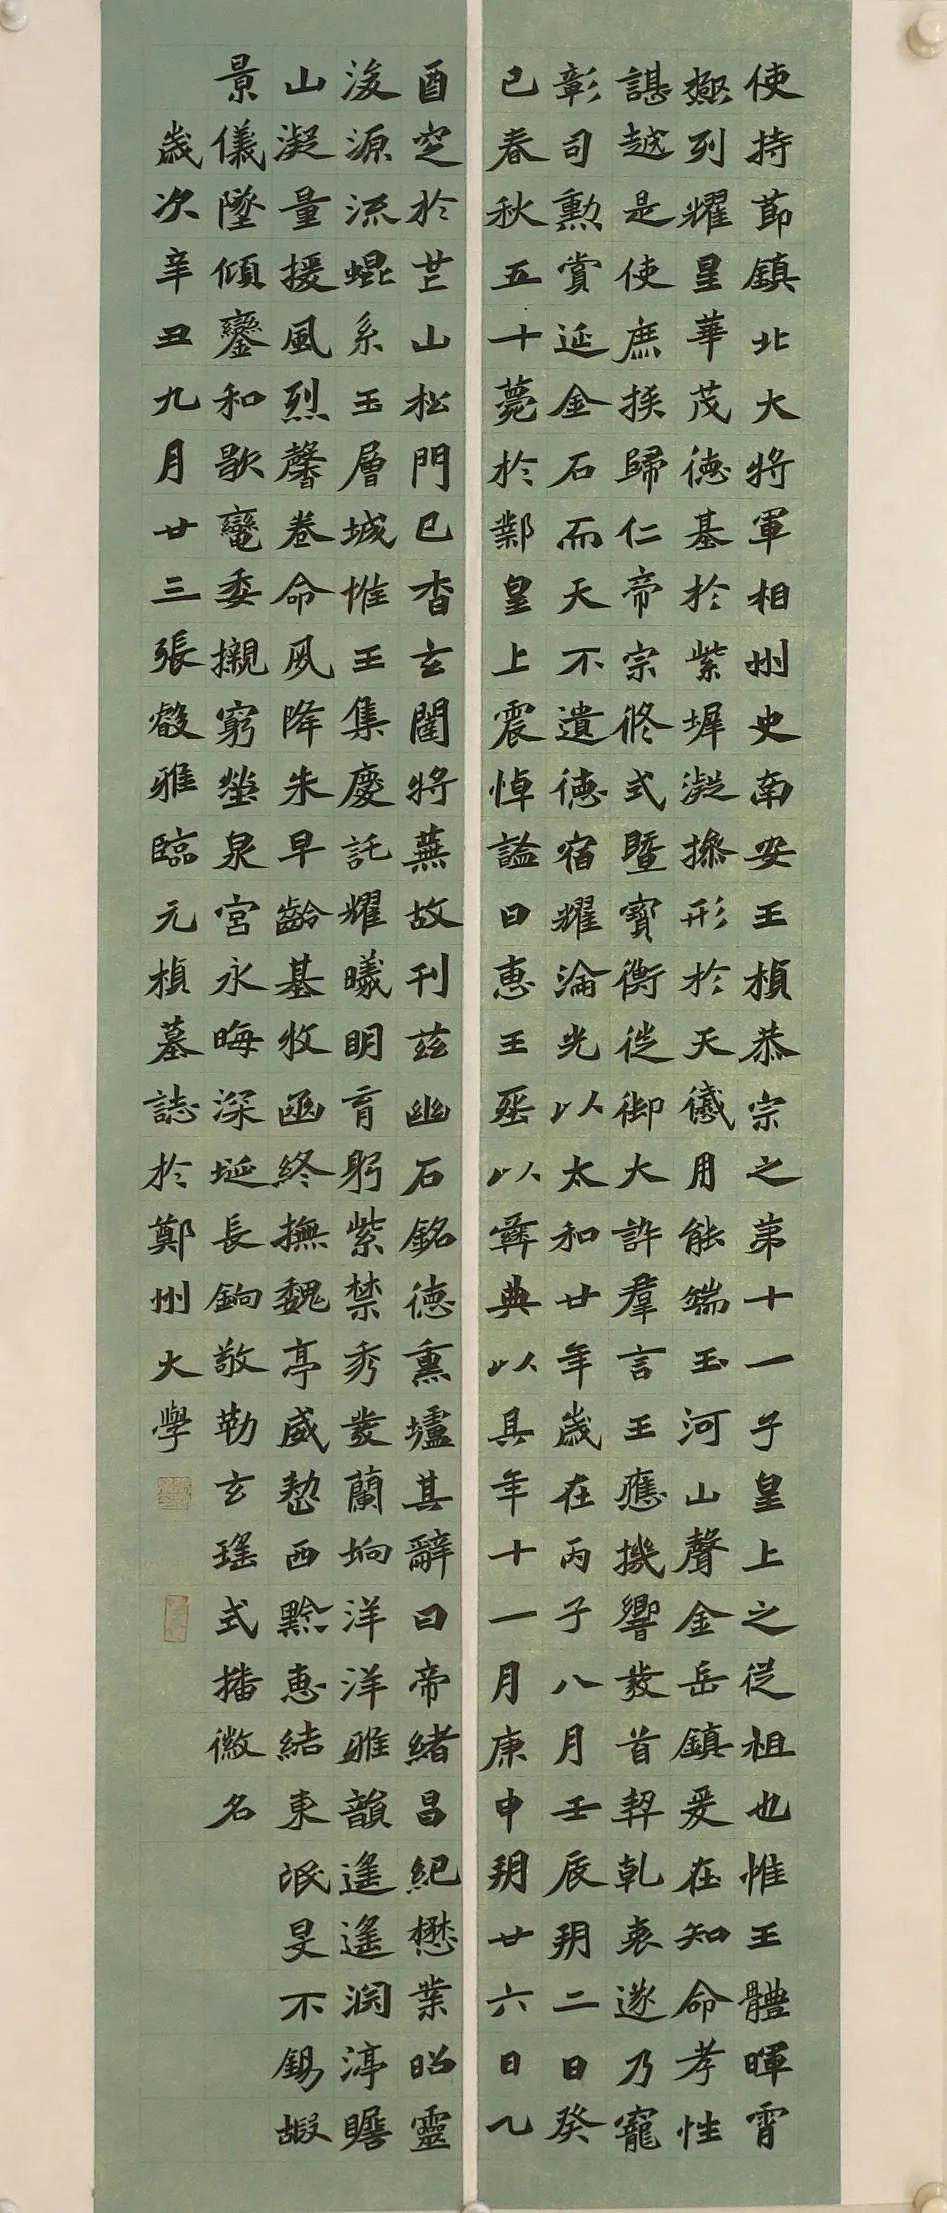 使持節鎮北大將軍相州史南安王楨恭宗之第十一子皇上之從祖也惟王體暉霄
極列耀星華茂德基於紫墀凝操形於天儀用能端玉河山聲金岳鎮爰在知命孝性
諶越是使庶族歸仁帝宗攸式暨寶衡徙御大訊羣言王應機響發首契乾衷遂乃寵
彰司勳賞延金石而天不遺德宿耀淪光以太和廿年歲在丙子八月壬辰朔二日癸
巳春秋五十薨於鄴皇上震悼謚曰惠王葬以彝典以其年十一月庚申朔廿六日乙
酉窆於芒山松門已杳玄閨將蕪故刊茲幽石銘德熏壚其辭曰帝緒昌紀懋業昭靈
浚源流崐系玉層城惟王集慶託耀曦明育躬紫禁秀發蘭坰洋洋雅韻遙遙淵渟瞻
山凝量援風烈馨卷命夙降朱早齡基牧函終撫魏亭威愬西黔惠結東氓旻不錫嘏
景儀墜傾鑾和歇轡委櫬窮塋泉宮永晦深埏長銄敬勒玄瑤式播徽名
歲次辛丑九月廿三張叡雅臨元楨墓誌於鄭州大學